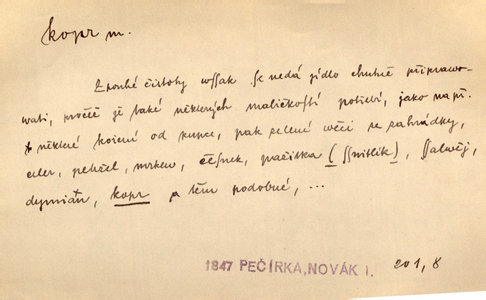 kopr m.
Z pouhé čistoty wssak se nedá jídlo chutně připrawo-
wati, pročež je také některých maličkostí potřebí, jako např.
některé koření od kupce, pak zelené wěci ze zahrádky,
celer, petržel, mrkew, česnek, pažitka (ssnitlik), ssalwěj,
dymián, kopr a těm podobné, ...
1847 PEČÍRKA, NOVÁK I. 201, 8